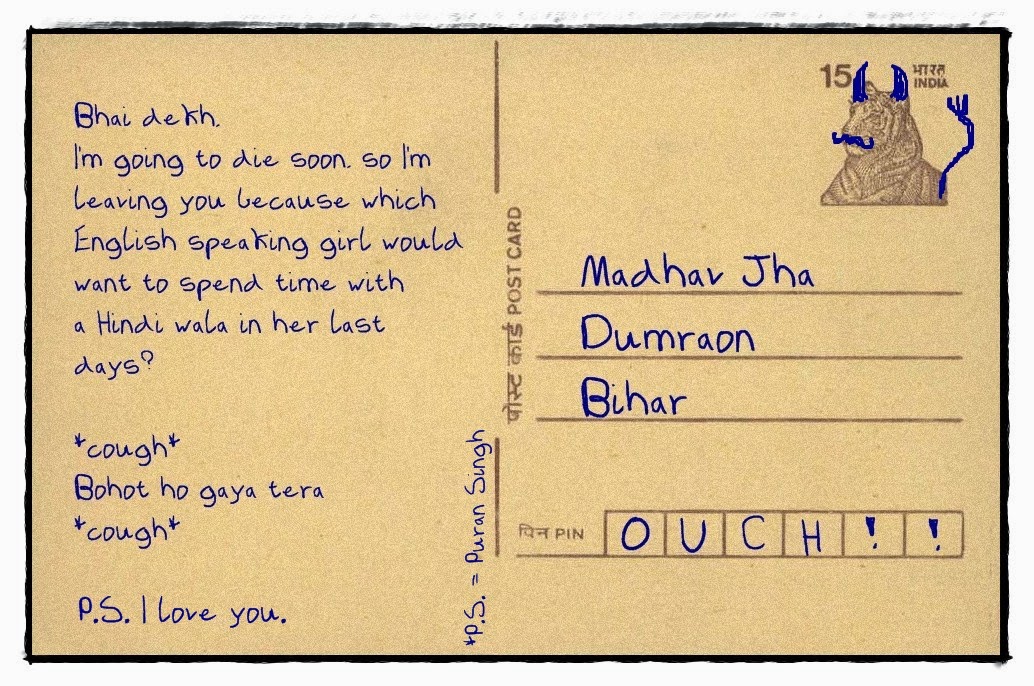 Bhai dekh.
I'm going to die soon. so I'm
leaving you because which
English speaking girl would
want to spend time with
a Hindi wala in her last
days?
*cough*
Bohot ho gaya tera
*cough*
P.S. I love you.
*P.S. = Puran Singh
पोस्ट कार्ड POST CARD
15 भारत
INDIA
Madhav Jha
Dumraon
Bihar
पिन PIN O U C H ! !